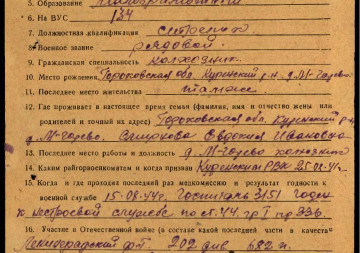 5. Образование
6. На ВУС 134
7. Должностная квалификация стрелок
8. Военное звание рядовой
9. Гражданская специальность колхозник
10. Место рождения обл. р-н. д.
11. Последнее место жительства там же
12. Где проживает в настоящее время семья (фамилия, имя и отчество жены или
родителей и точный их адрес) обл. р-н
д. Смирнова Ивановна
13. Последнее место работы и должность д. колхозник
14. Каким райгорвоенкоматом и когда призван РВК 25.08.41г.
15. Когда и где проходил последний раз медкомиссию и результат годности к
военной службе 15.08.44г. Госпиталь 3151 годен
к нестроевой службе по ст. 44. гр I пр 336.
16. Участие в Отечественной войне (в составе какой последней части в качестве
Ленинградский фт. 202 див 682 п.